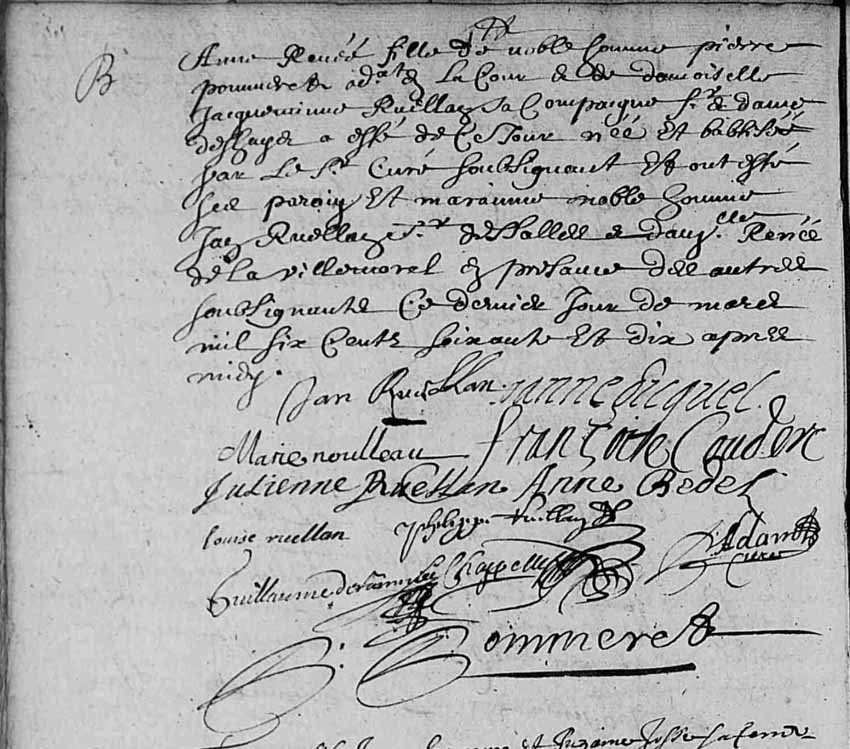 B
Anne Renée fille de noble homme pierre
pommeret ad.at en la Cour & de damoiselle
Jacqueminne Ruellan sa Compaigne sr & dame
deshayes a esté de Ce Jour néé et babtiséé
par Le Sr Curé soubsignant Et ont esté
ses parain Et maraine noble homme
Jan Ruellan sr des Salles & damlle Renéé
de la villemorel en presance des autres
soubsignants Ce dernier Jour de mars
mil six Cents soixante Et dix apres
midy.
Jan Ruellan janne picquel
Marie noulleau françoise Couderc
Julienne Ruellan Anne Bedel
louise ruellan philippe ruellan
Adam
Curé
Guillaume Chappelle
Pommeret